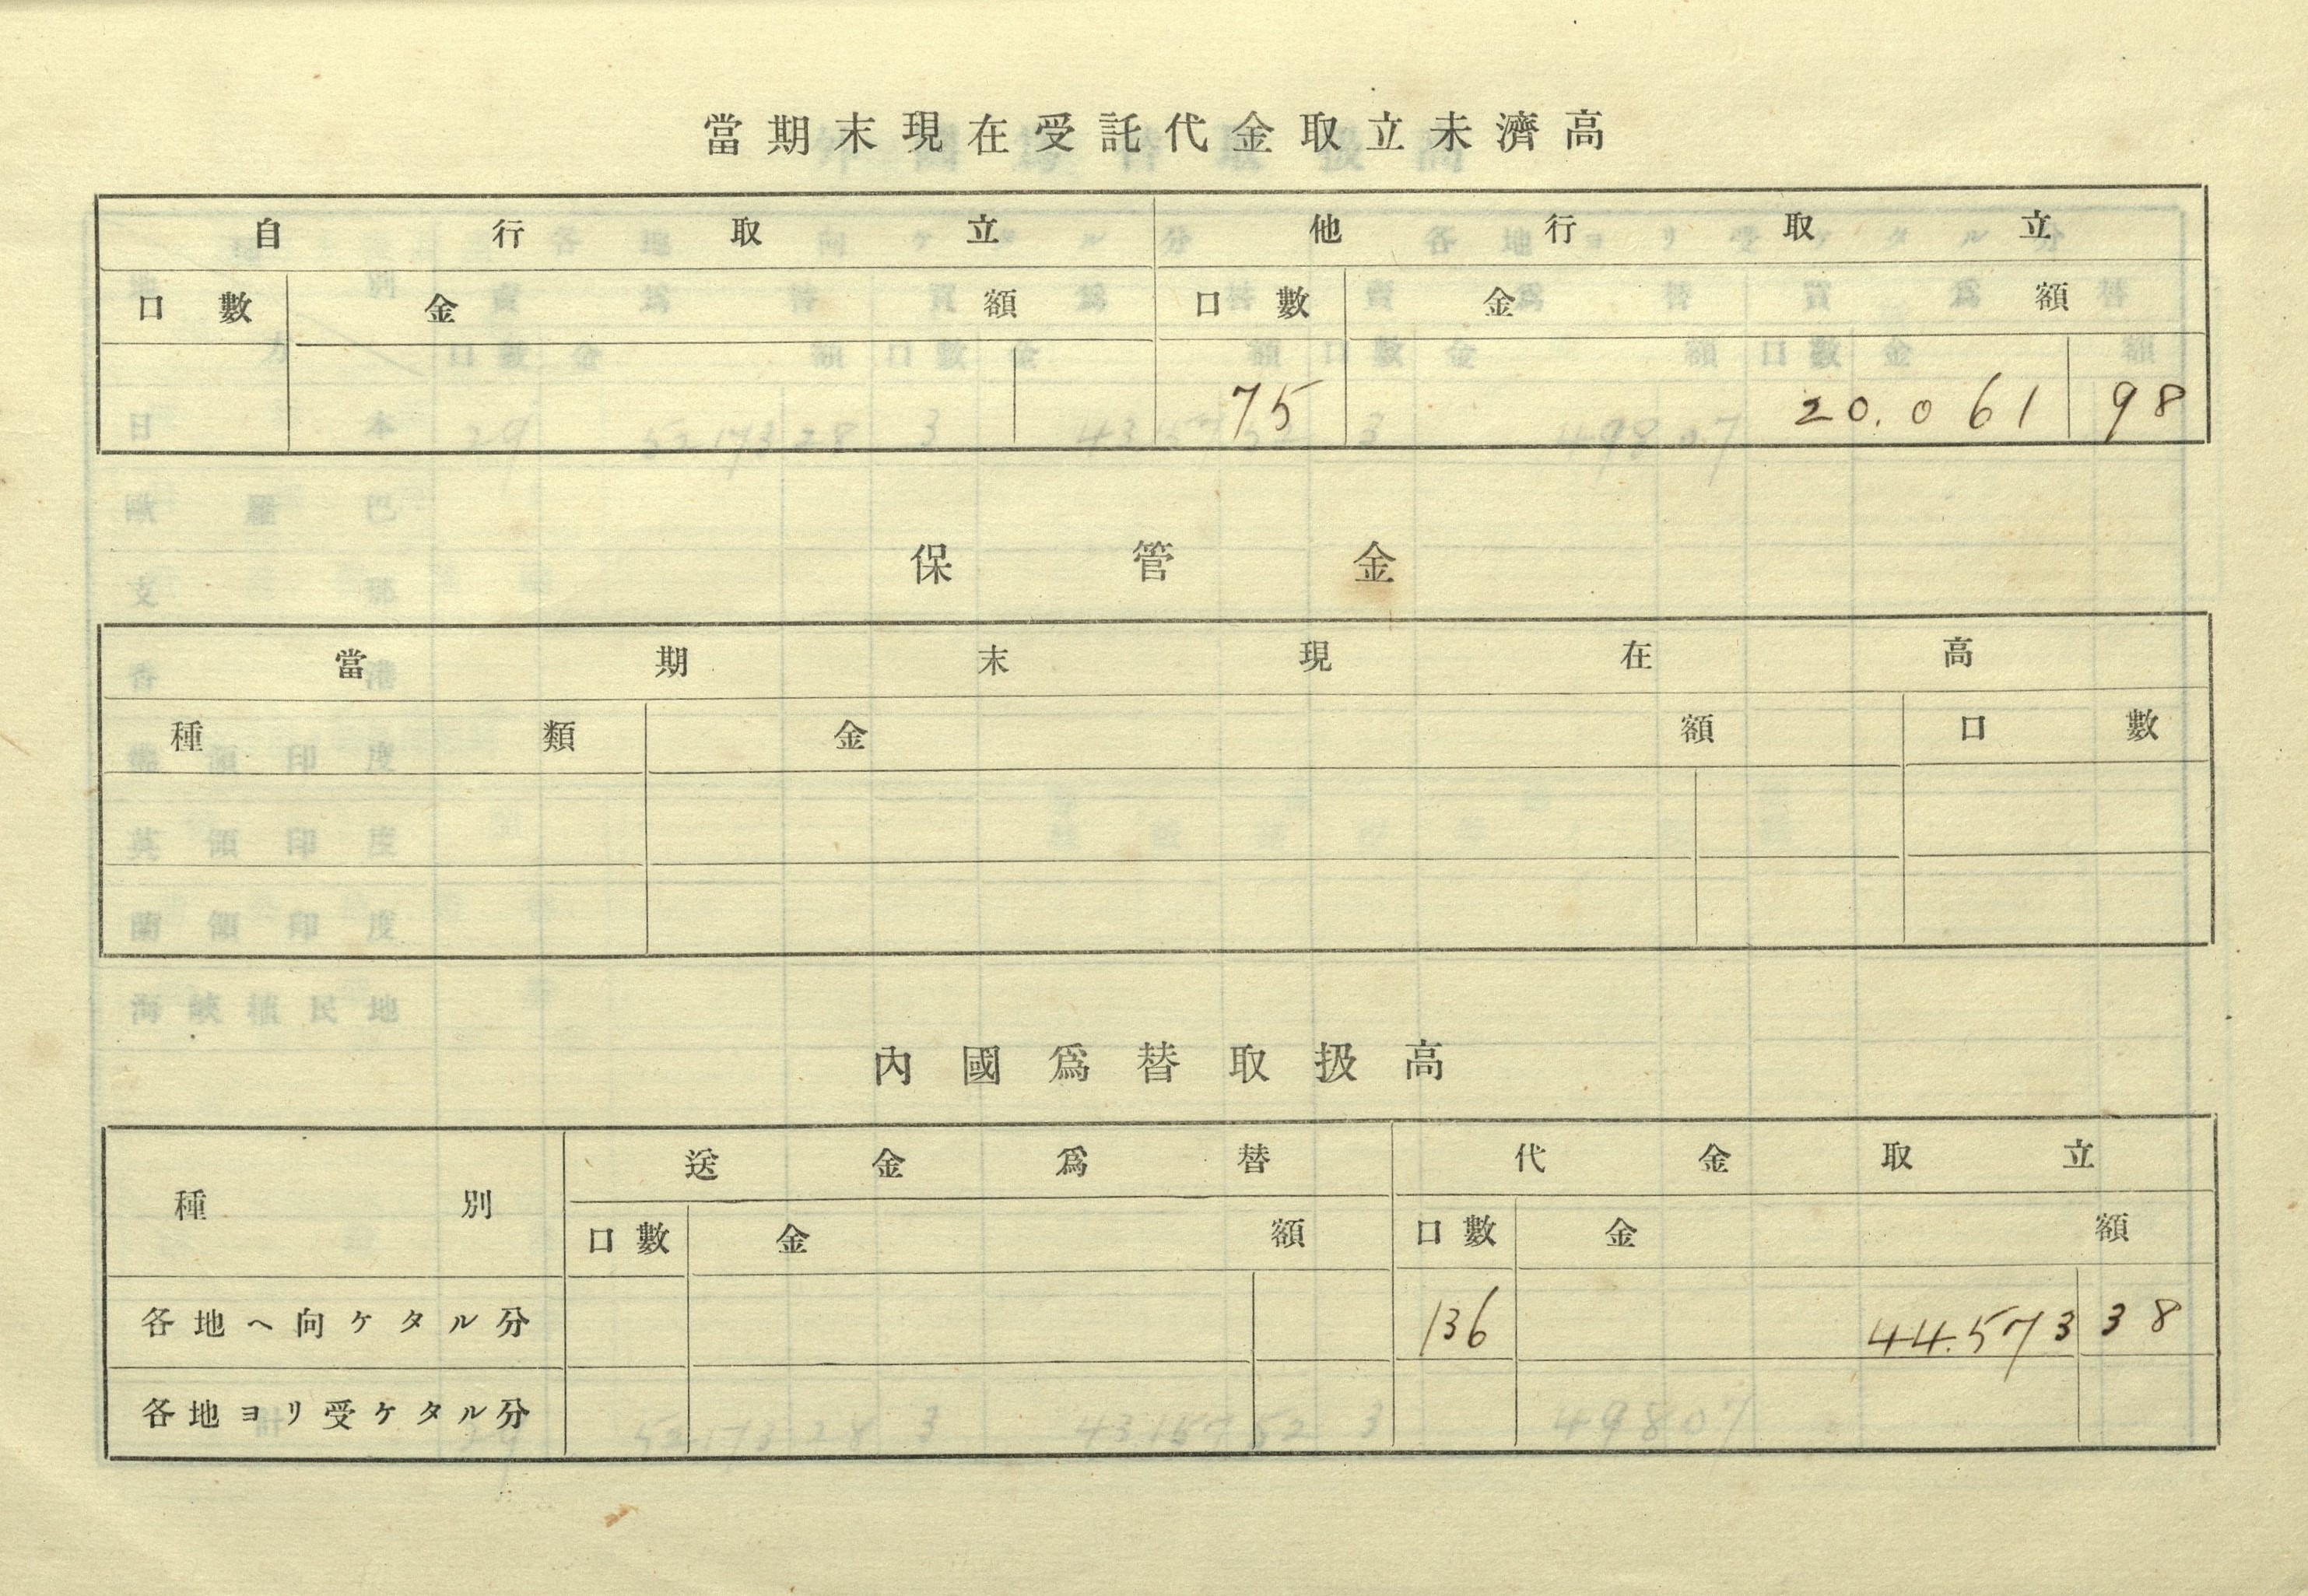 當期末現在受託代金取立未濟高
自行取立 他行取立
口數 金額 口數 金額
75 20.061 98
保管金
當期末現在高
種類 金額 口數
內國爲替取扱高
種別 送金爲替 代金取立
口數 金額 口數 金額
各地ヘ向ケタル分 136 44.573 38
各地ヨリ受ケタル分